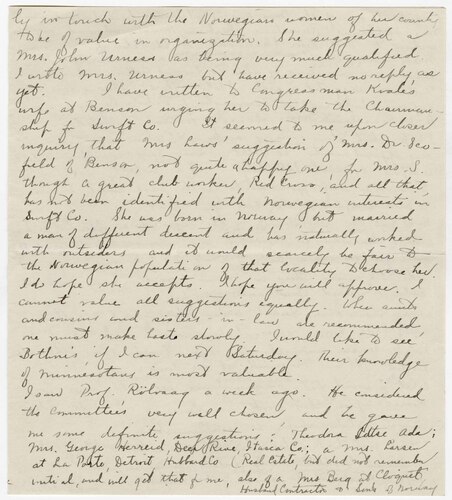 ly in touch with the Norwegian women of her county
to be of value in organization. She suggested a
Mrs. John Urness as being very much qualified
I wrote Mrs. Urness but have received no reply as
yet. I have written to Congressman Kvale's
wife at Benson urging her to take the Chairman-
ship for Swift Co. It seemed to me upon closer
inquiry that Mrs Laws' suggestion of Mrs. Dr Sco-
field of Benson, not quite a happy one, for Mrs. S.
though a great club worker, Red Cross, and all that,
has not been identified with Norwegian interests in
Swift Co. She was born in Norway but married
a man of different descent and has naturally worked
with outsiders and it would scarcely be fair to
the Norwegian population of that locality to choose her.
I do hope she accepts. I hope you will approve. I
cannot value all suggestions equally. When aunts
and cousins and sisters-in-law are recommended,
one must make haste slowly. I would like to see
Bothne's if I can next Saturday. Their knowledge
of Minnesotans is most valuable.
I saw Prof. Rölvaag a week ago. He considered
the committees very well chosen, and he gave
me some definite suggestions; Theodora Ada;
Mrs. George Herreid, Deer River, Itasca Co; a Mrs. Larsen
at La Porte, Hubbard Co (Real Estate, but did not remember
initial, and will get that for me, also of a Mrs Berg at Cloquet,
Husband Contractor & Sec. of Norway